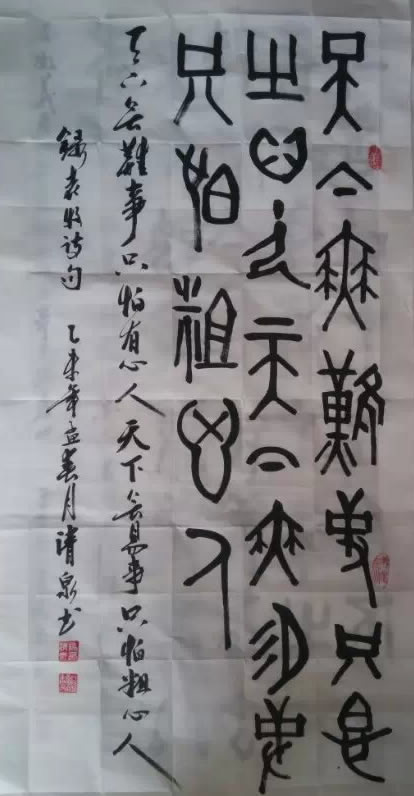 天下無難事只
心天下無易事
只怕粗心人
天下無難事只怕有心人天下無易事只怕粗心人
錄袁牧詩句 乙未年春月清泉书